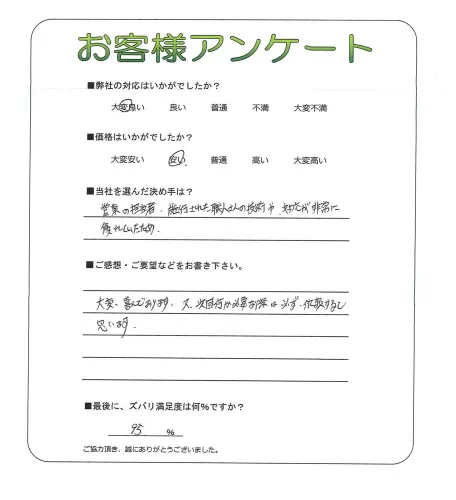 お客様アンケート
■弊社の対応はいかがでしたか?
大変良い 良い 普通 不満 大変不満
■価格はいかがでしたか?
大変安い 安い 普通 高い 大変高い
■当社を選んだ決め手は?
営業の担当者、施行された職人さんの技術や、対応が非常に
優れていたため。
■ご感想・ご要望などをお書き下さい。
大変、喜んでおります。又、次回何か必要な際は必ず、依頼すると
思います。
■最後に、ズバリ満足度は何%ですか?
95 %
ご協力頂き、誠にありがとうございました。